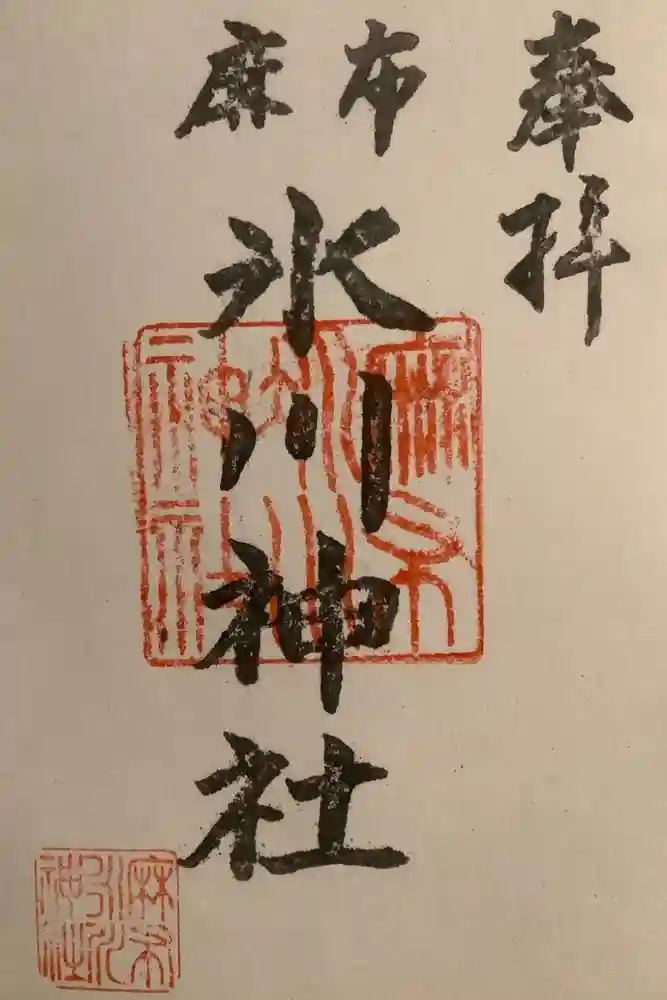 奉拝
麻布
氷川神社
麻布
氷川
神社
麻布
氷川
神社